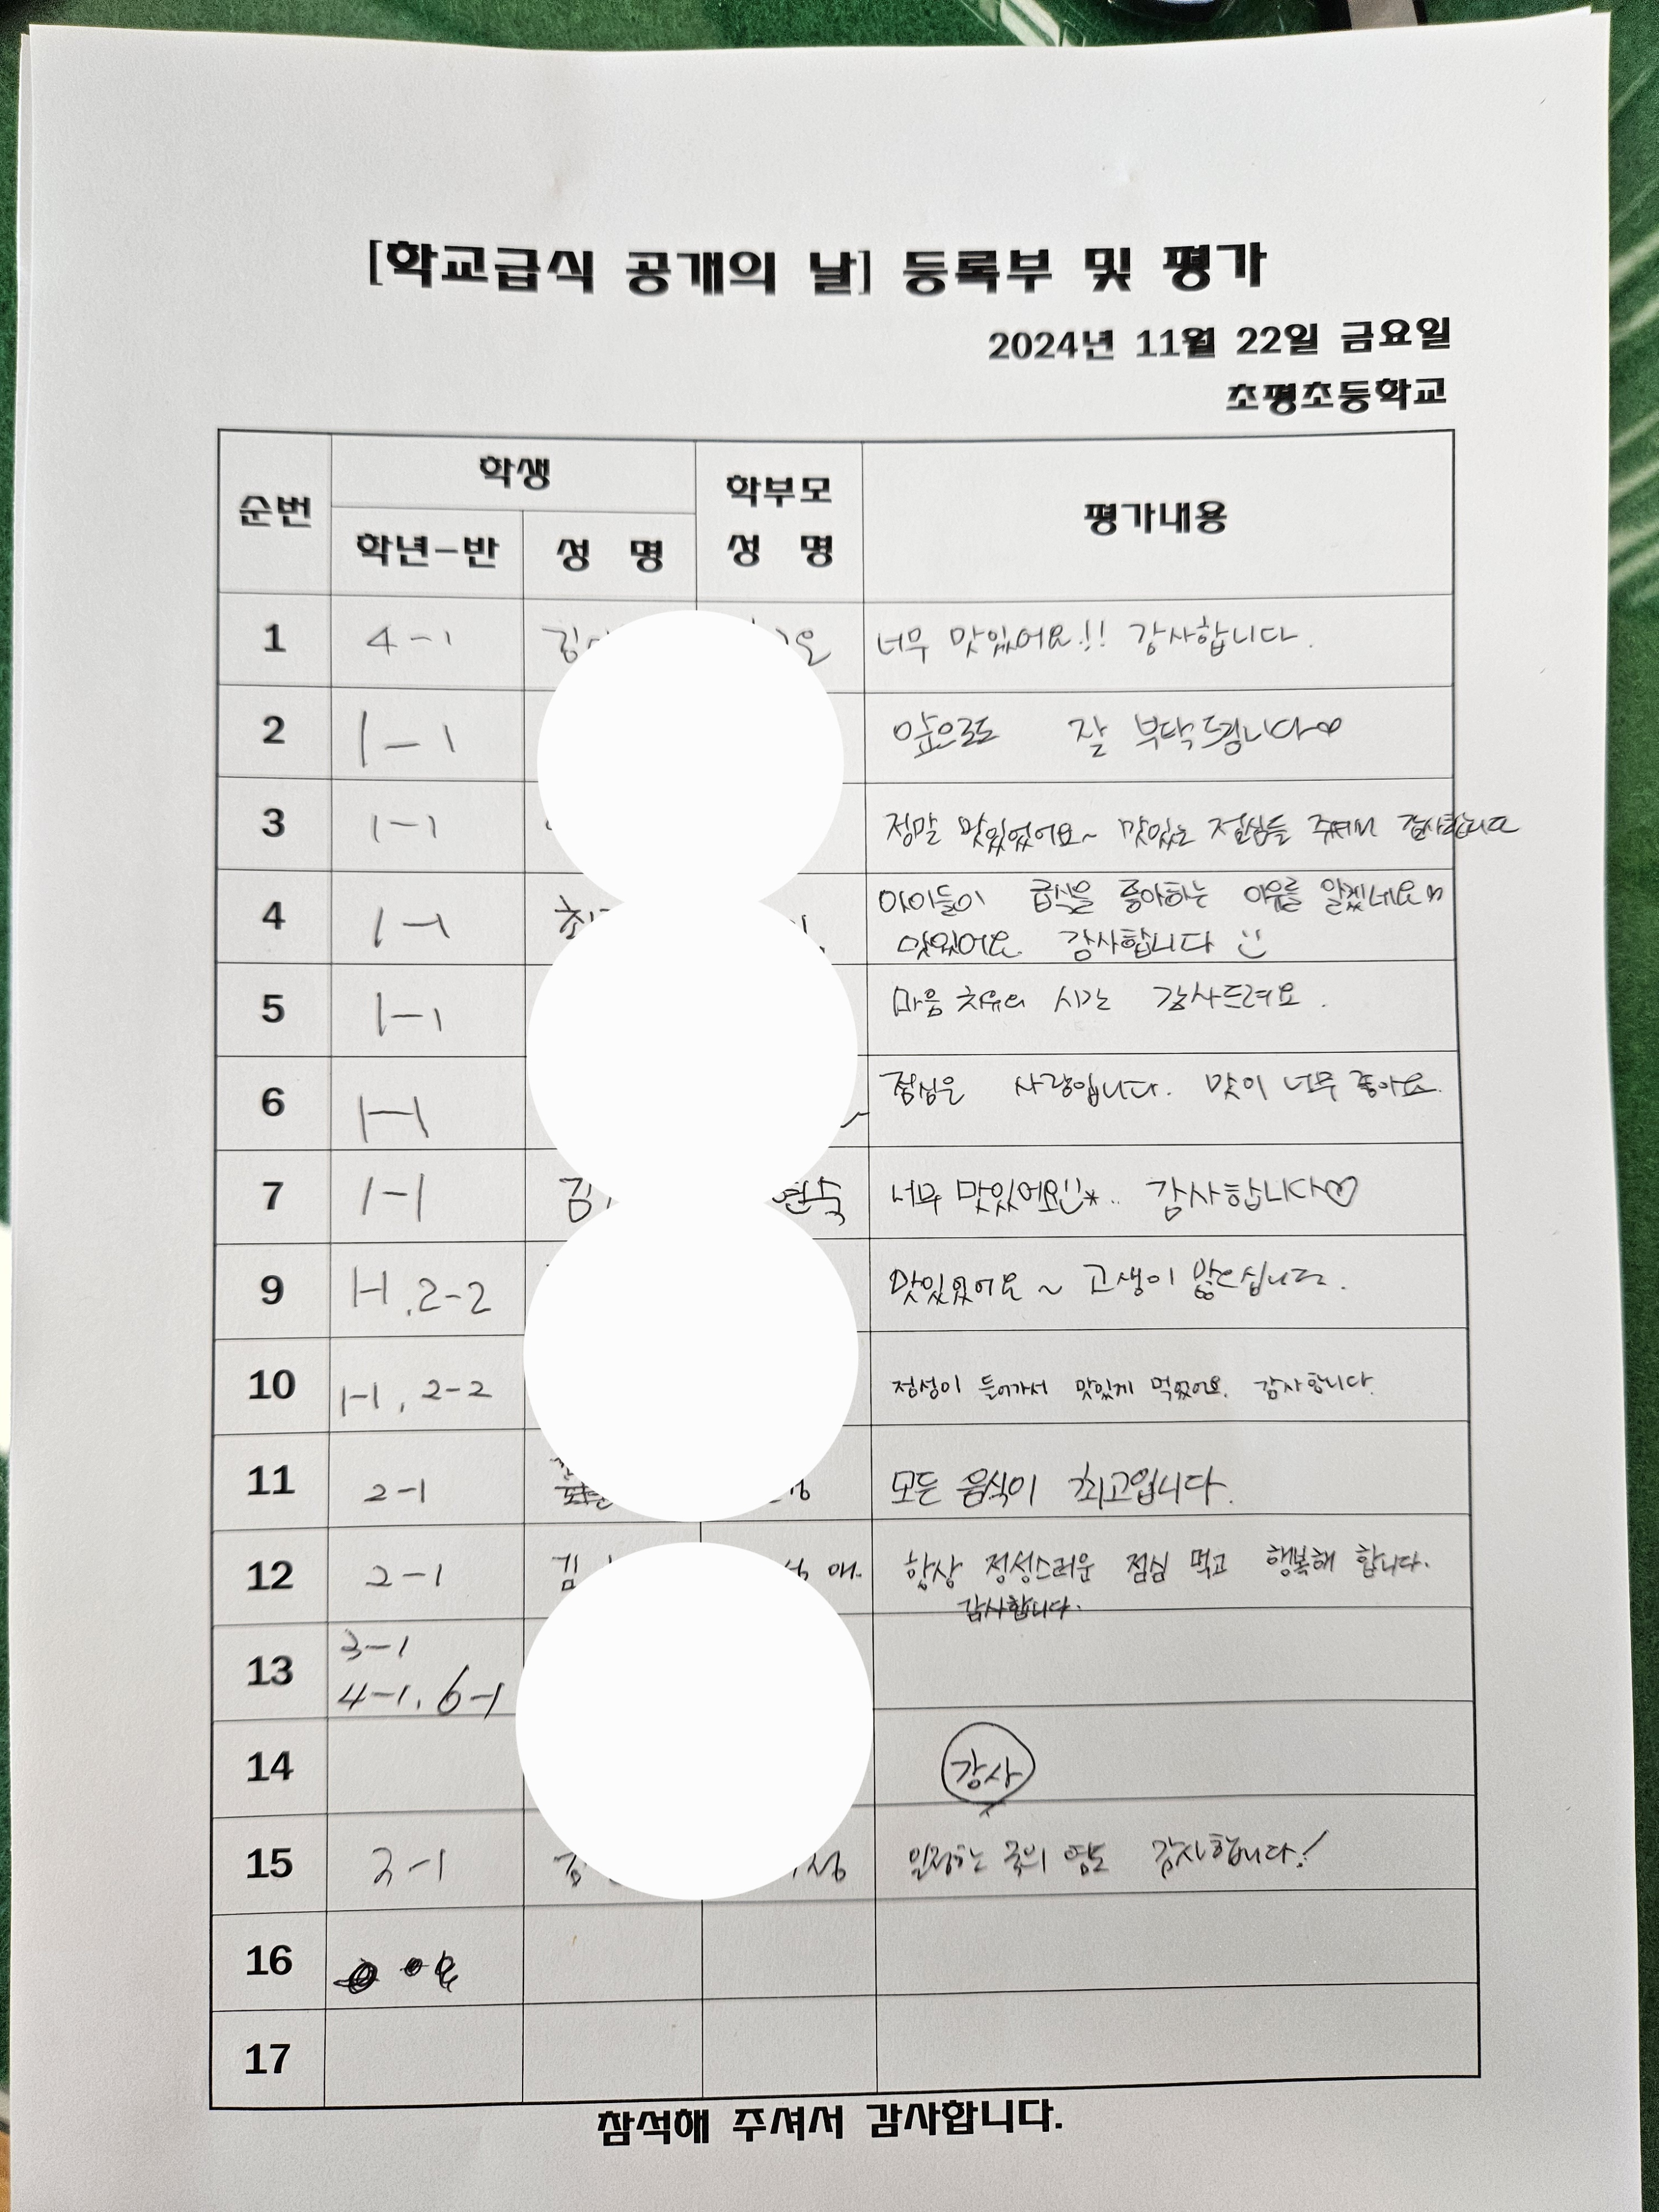 [학교급식 공개의 날] 등록부 및 평가
2024년 11월 22일 금요일
초평초등학교
순번 학생 학부모 성 명 평가내용
학년-반 성 명
1 4-1 너무 맛있어요!! 감사합니다.
2 1-1 앞으로도 잘 부탁드립니다♡
3 1-1 정말 맛있었어요~ 맛있는 점심을 주셔서 감사합니다
4 1-1 아이들이 급식을 좋아하는 이유를 알겠네요
맛있어요. 감사합니다
5 1-1 마음 치유의 시간 감사드려요.
6 1-1 점심은 사랑입니다. 맛이 너무 좋아요.
7 1-1 너무 맛있어요!!* 감사합니다♡
9 1-1, 2-2 맛있었어요~ 고생이 많으십니다.
10 1-1, 2-2 정성이 들어가서 맛있게 먹었어요. 감사합니다.
11 2-1 모든 음식이 최고입니다.
12 2-1 항상 정성스러운 점심 먹고 행복해 합니다.
감사합니다.
13 3-1
4-1, 6-1
14 감사
15 2-1 감사합니다!
16
17
참석해 주셔서 감사합니다.